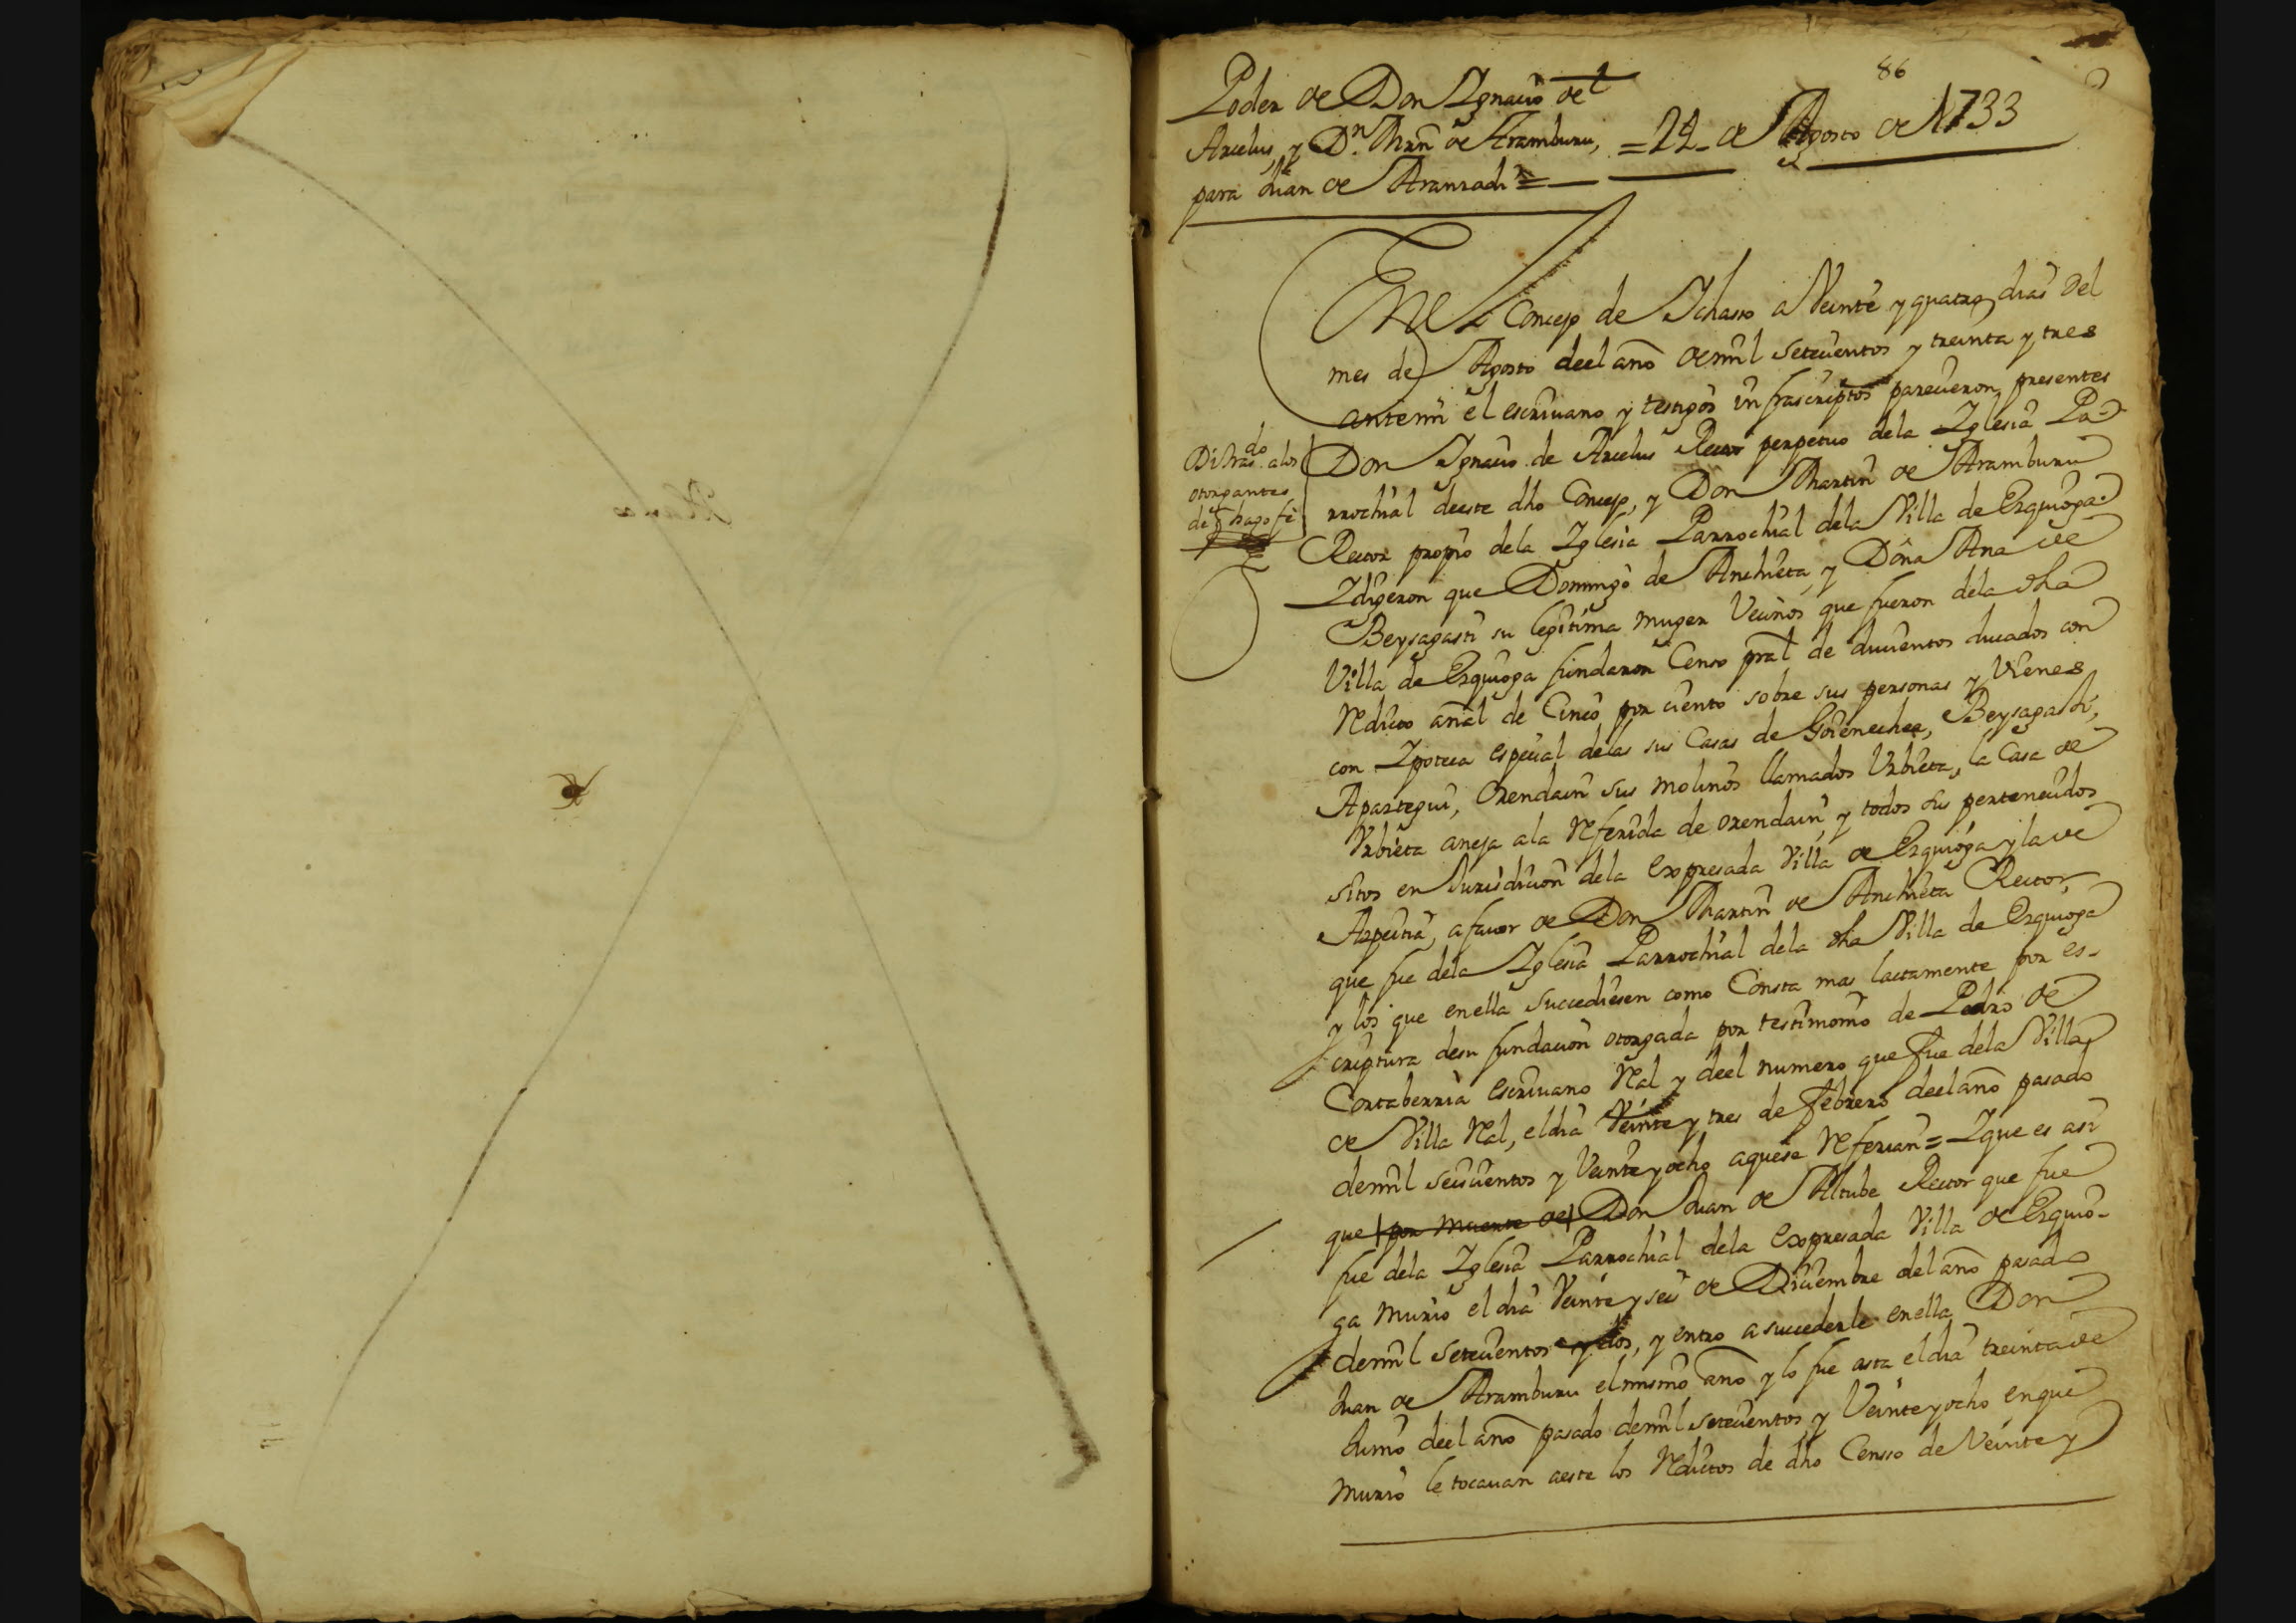 86
Poder de Don Ignacio de
Arcelus, y Dn. Mrn de Aramburu,
para Juan de Aranzadi =
= 24 de Agosto de 1733
En el Concejo de Ichaso a Veinte y quatro dias del
mes de Agosto deel año de mil setecientos y treinta y tres
antemi el escrivano y testigos infrascriptos parecieron presentes
Don Ignacio de Arcelus Rector perpetuo dela Iglesia Pa-
rrochial deeste dho Concejo, y Don Martin de Aramburu
Rector propio dela Iglesia Parrochial dela Villa de Ezquioga
Y digeron que Domingo de Anchieta, y Doña Ana de
Beysagasti su legitima muger Vecinos que fueron dela dha
Villa de Ezquioga fundaron Censo pral de ducientos ducados con
Redito anal de Cinco por ciento sobre sus personas y Vienes
con Ipoteca especial delas sus Casas de Goienechea, Beysagasti,
Apartegui, Orendain sus molinos llamados Urbieta, la Casa de
Urbieta aneja ala Referida de orendain, y todos sus pertenecidos
sitos en Jurisdicion dela Expresada Villa de Ezquioga y la de
Azpeitia, a favor de Don Martin de Anchieta Rector,
que fue dela Iglesia Parrochial dela dha Villa de Ezquioga
y los que enella succediesen como Consta mas lactamente por es-
criptura desu fundacion otorgada por testimonio de Pedro de
Cortaberria Escrivano Ral y deel numero que fue dela Villa
de Villa Ral, el dia Veinte y tres de Febrero deel año pasado
demil seiscientos y Veinte y ocho aquese Referian = Y que es asi
que por muerte de Don Juan de Altube Rector que fue
fue dela Iglesia Parrochial dela Expresada Villa de Ezquio-
ga murio el dia Veinte y seis de Diciembre del año pasado
demil setecientos y dos, y entro a succederle enella Don
Juan de Aramburu el mismo año y lo fue asta el dia treinta de
Junio deel año pasado demil setecientos y Veinte y ocho en que
murio le tocavan aeste los Reditos de dho Censso de Veinte y
do alos
otorgantes
de q hago fe